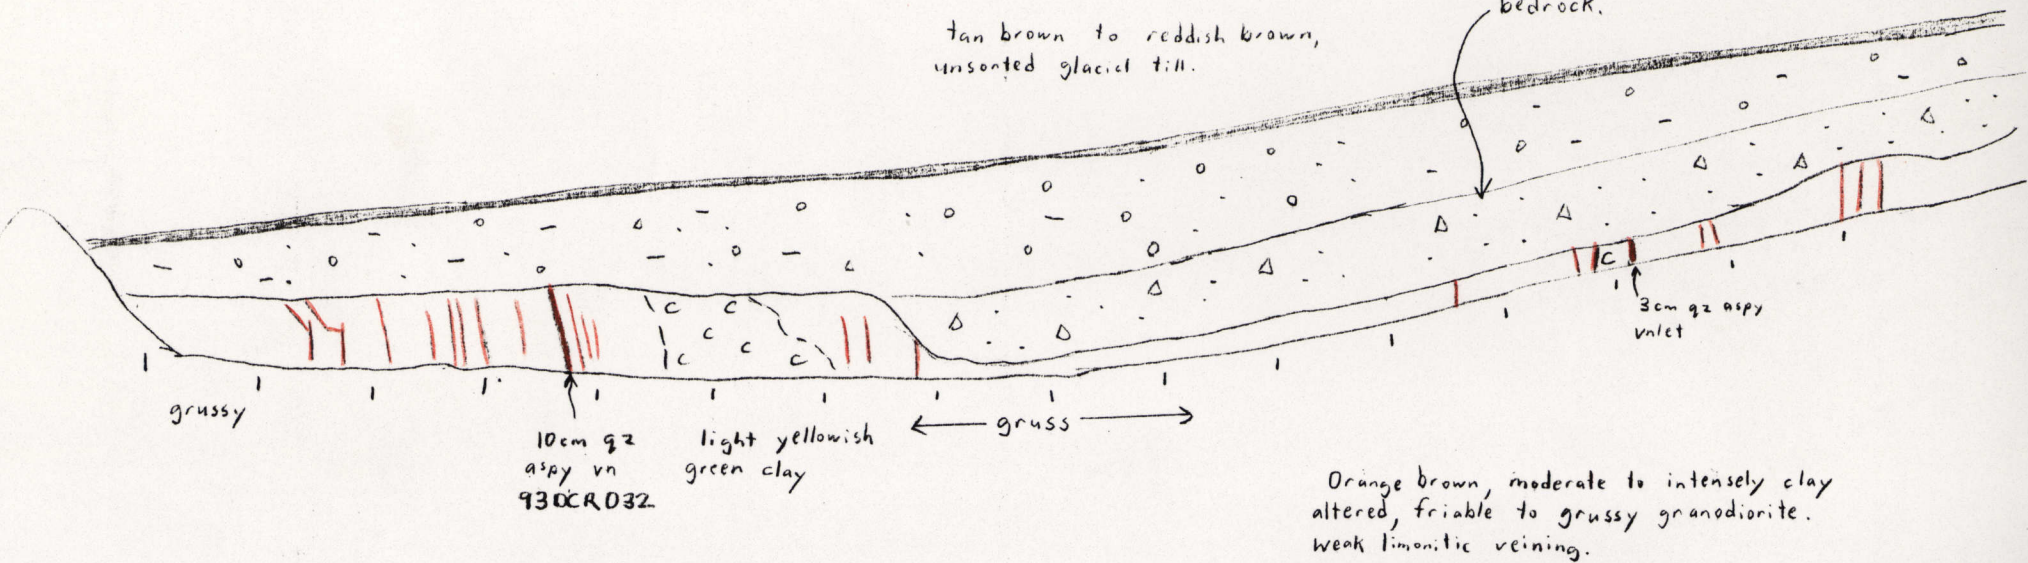 bedrock.
tan brown to reddish brown,
unsorted glacial till.
C
C C
C
C
C C
3cm qz aspy
vnlet
grussy
gruss
10cm qz
aspy vn
93DCR032
light yellowish
green clay
Orange brown, moderate to intensely clay
altered, friable to grussy granodiorite.
Weak limonitic veining.